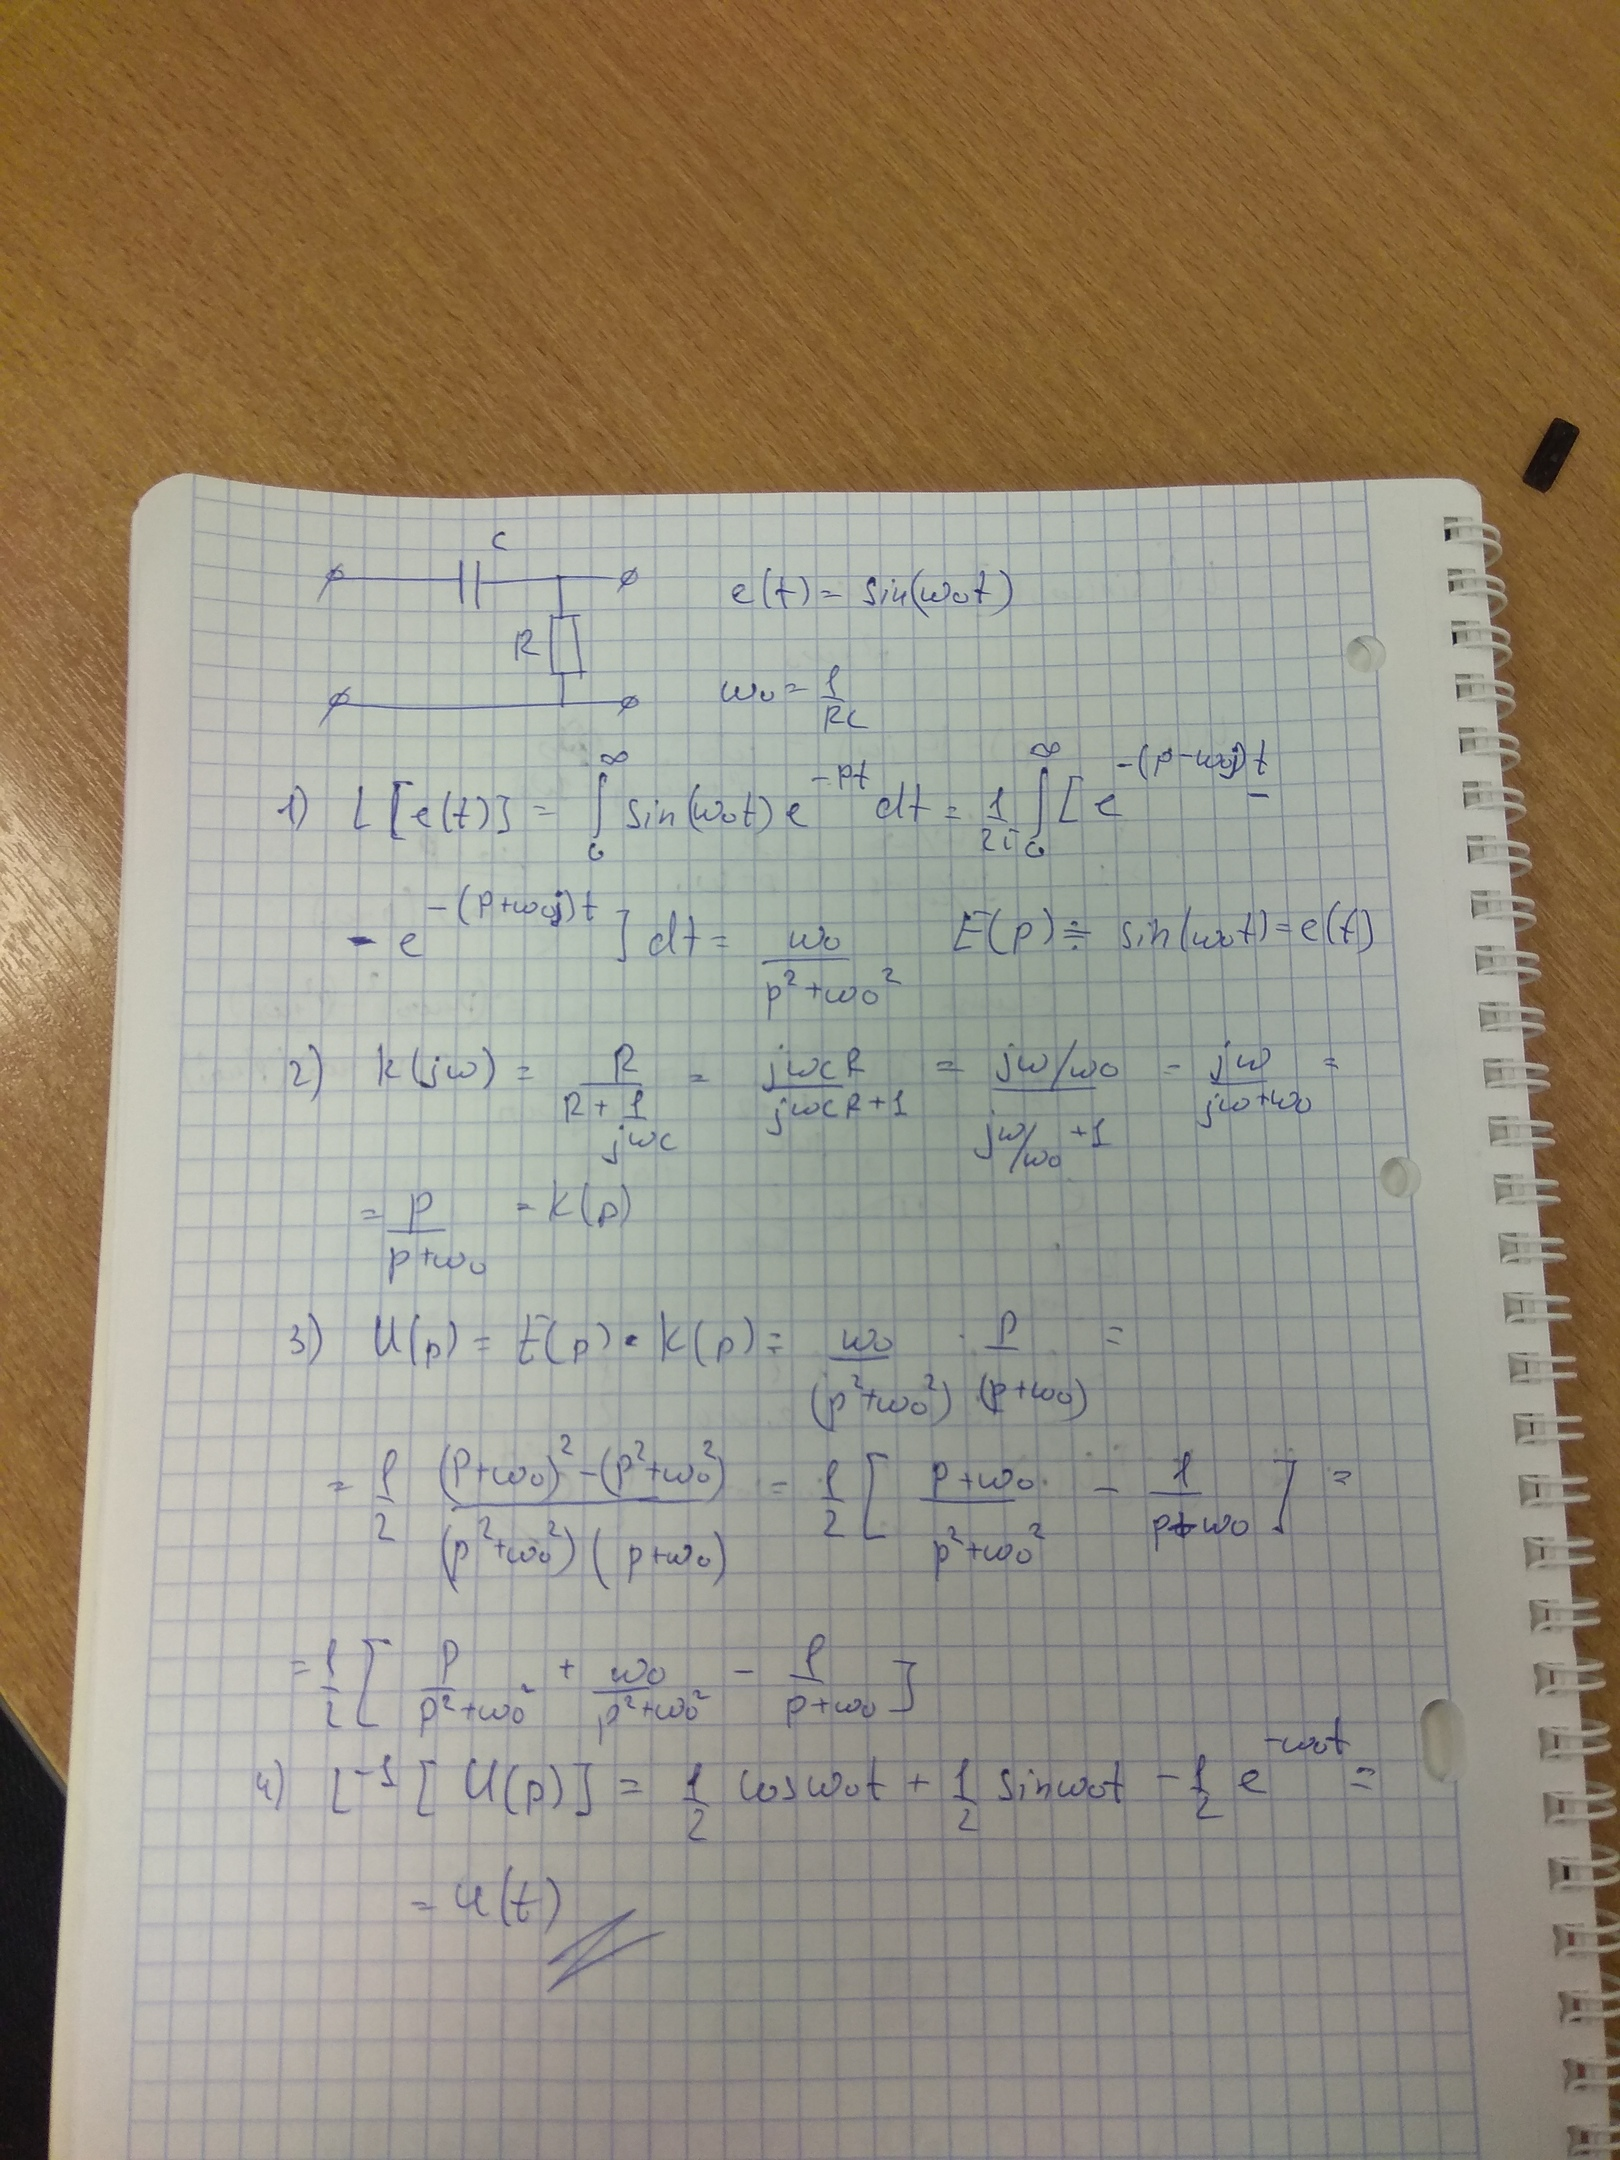 C
R
e(t) = sin(ω₀t)
ω₀ = 1/RC
1) L[e(t)] = ∫₀^∞ sin(ω₀t) e^{-pt} dt = 1/2i ∫₀^∞ [e^{-(p-ω₀j)t} -
- e^{-(p+ω₀j)t}] dt = ω₀/(p²+ω₀²) E(p) ≑ sin(ω₀t) = e(t)
2) K(jω) = R/(R + 1/jωC) = jωCR/(jωCR+1) = (jω/ω₀)/(jω/ω₀ +1) = jω/(jω+ω₀) =
= p/(p+ω₀) = K(p)
3) U(p) = E(p) · K(p) = ω₀/(p²+ω₀²) · p/(p+ω₀) =
= 1/2 ((p+ω₀)² - (p²+ω₀²))/((p²+ω₀²)(p+ω₀)) = 1/2 [(p+ω₀)/(p²+ω₀²) - 1/(p+ω₀)] =
= 1/2 [p/(p²+ω₀²) + ω₀/(p²+ω₀²) - 1/(p+ω₀)]
4) L⁻¹[U(p)] = 1/2 cosω₀t + 1/2 sinω₀t - 1/2 e^{-ω₀t} =
= u(t)